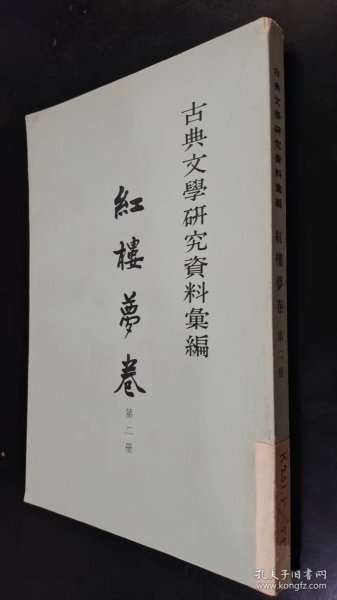 古典文學研究資料彙編
紅樓夢卷
第二册
古典文學研究資料彙編 紅樓夢卷 第二册
孔夫子旧书网
www.kongfz.com